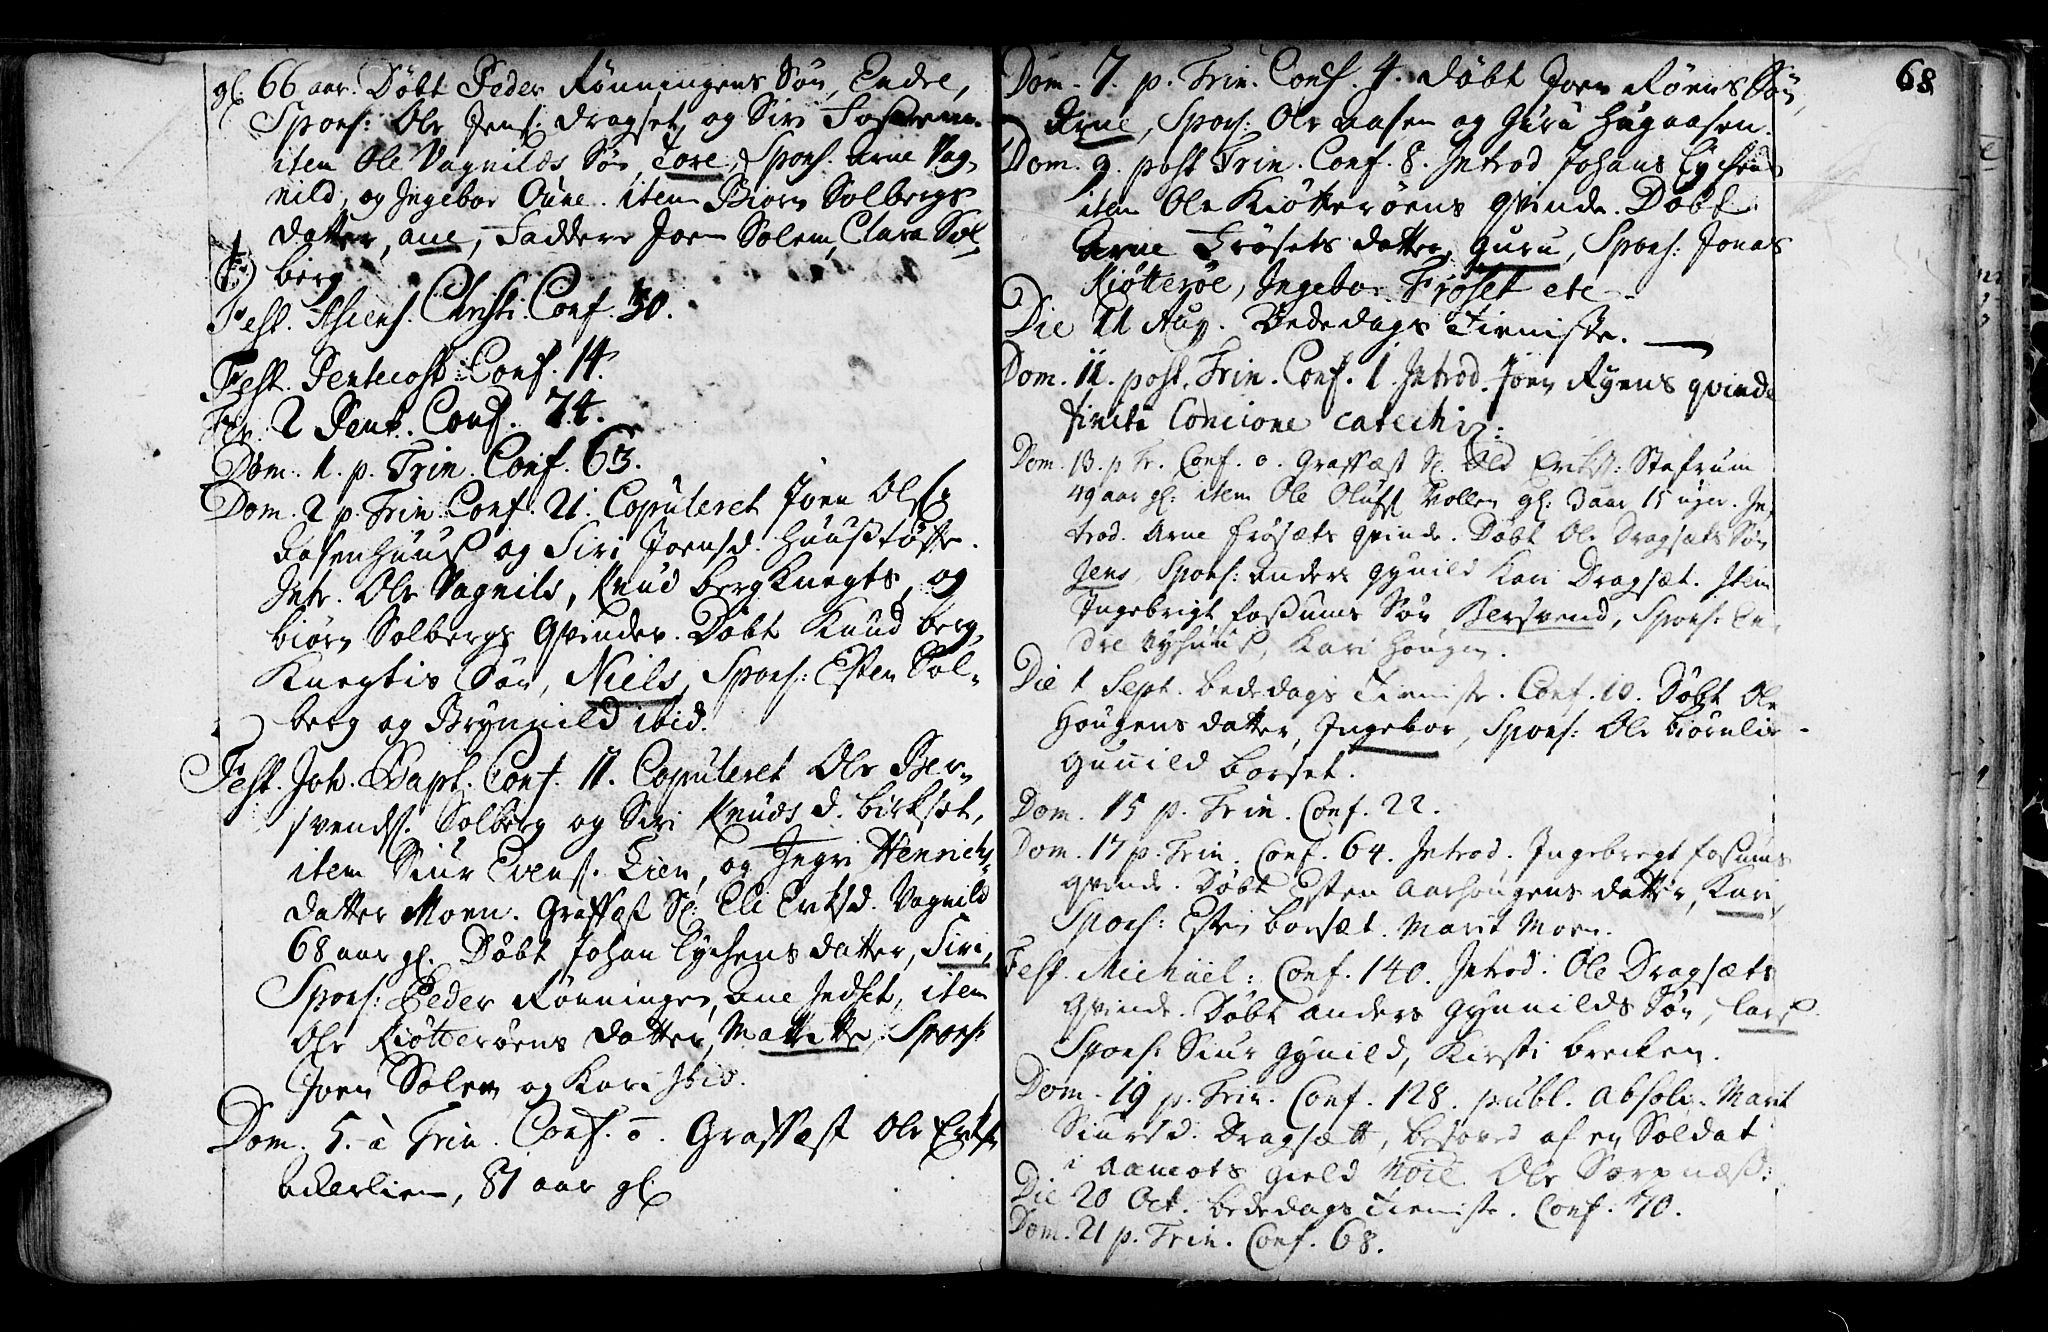 gl. 66 aar. Døbt Peder Rønningens Søn, Endre,
Spons: Ole Jens: Dragset, og Siri
item Ole Vagnilds Søn, Tore, Spons. Arne Vag-
nild, og Ingebor Oune. item Biørn Solbergs
datter, ane, Faddere Joen Solem, Clara Sol-
berg
Fest. Ascens. Christi. Conf. 30.
Fest. Pentecost: Conf. 14.
Fer. 2 Pent. Conf. 74.
Dom. 1. p. Trin. Conf. 63.
Dom. 2 p. Trin. Conf. 21. Copuleret Joen Ols:
Aasenhuus og Siri Joensd. Huustøft.
Intr. Ole Vagnils, Knud bergknegts, og
biørn Solbergs Qvinder. Døbt Knud berg-
Knegtis Søn, Niels, Spons: Esten Sol-
berg og Brynnild ibid.
Fest. Joh. Bapt. Conf. 11. Copuleret Ole Ber-
svends. Solberg og Siri Knudsd. birkset,
item Siur Evens. Lien, og Ingri Henrichs-
datter Moen. Graffæst Sl: Eli Eriksd. Vagnild
68 aar gl. Døbt Johan Lychens datter, Siri,
Spons: Peder Rønningen, ane Indset, item
Ole Kiøtterøens datter, Marette, Spons:
Joen Solem og Kari ibid.
Dom. 5. à Trin. Conf. 0. Graffæst Ole Eriks:
Ackerlien, 81 aar gl.
68
Dom. 7. p. Trin. Conf. 4. Døbt Joen Røens Søn,
Arne, Spons: Ole Aasen og Guru Hugaasen.
Dom. 9. post Trin. Conf. 8. Introd Johans Lychens
item Ole Kiøtterøens Qvinde. Døbt
Arne Frøsets datter, Guru, Spons: Jonas
Kiøtterøe, Ingebor Frøset etc
Die 11 Aug. Bededags Tieniste.
Dom. 11. post. Trin. Conf. 1. Introd. Joen Ryens qvinde
finita Concione catechiz:
Dom. 13. p Tr. Conf. 0. Graffæst Sl. Eriks: Stefrum
49 aar gl: item Ole Olufs Vollen gl: 3 aar 15 uger. In-
trod. Arne Frøsæts qvinde. Døbt Ole Dragsæts Søn
Jens, Spons: anders Gynild Kari Dragsæt. Item
Ingebrigt Fossums Søn, Bersvend, Spons: En-
dre Nyhuus, Kari Hougen.
Die 1 Sept. bededags Tieniste. Conf. 10. Døbt Ole
Hougens datter, Ingebor, Spons: Ole biørnlie-
Gunild borset.
Dom. 15 p. Trin. Conf. 22.
Dom. 17 p. Trin. Conf. 64. Introd. Ingebregt Fossums
qvinde. Døbt Esten Aashougens datter, Kari,
Spons: Esten borsæt. Marit Moen.
Fest. Michael: Conf. 140. Introd. Ole Dragsæts
qvinde. Døbt anders Gynnilds Søn, Lars
Spons: Siur Gynild, Kirsti brecken.
Dom. 19 p. Trin. Conf. 128. publ. Absolv. Marit
Siursd. Dragsætt, besoved af en Soldat
i Aamots gield Ole Sorpnæss:
Die 20 Oct. bededags Tieniste. Conf. 70.
Dom. 21 p. Trin. Conf. 68.